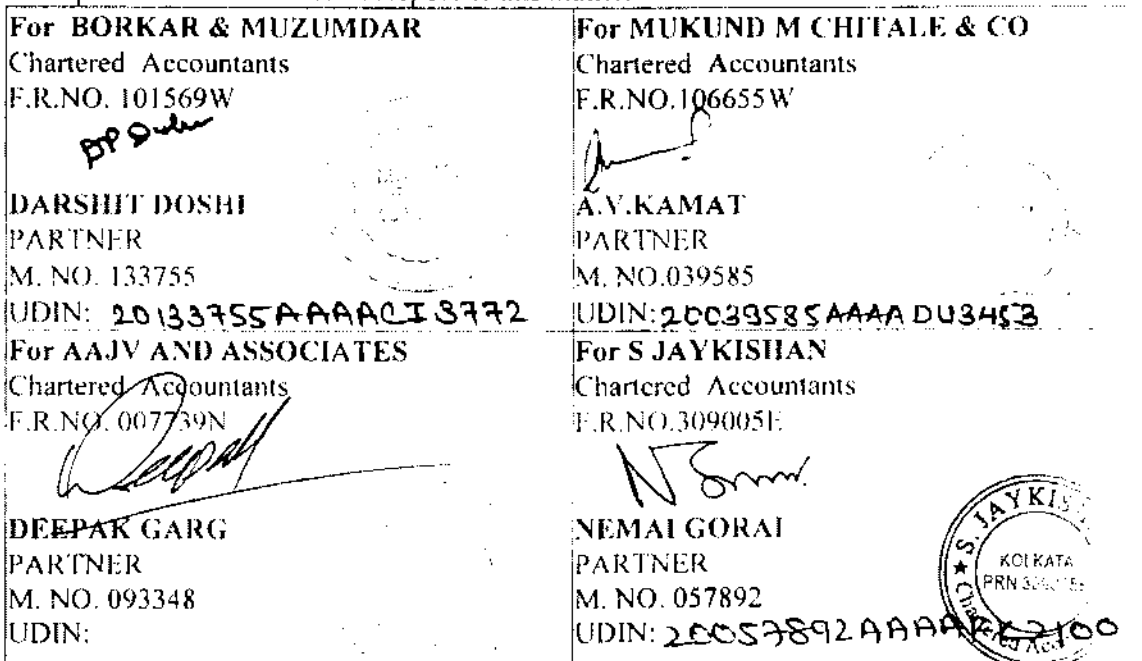 For BORKAR & MUZUMDAR
Chartered Accountants
F.R.NO. 101569W
DARSHIT DOSHI
PARTNER
M. NO. 133755
UDIN: 20133755AAAACI3772
For MUKUND M CHITALE & CO
Chartered Accountants
F.R.NO.106655W
A.V.KAMAT
PARTNER
M. NO.039585
UDIN: 20039585AAAADU3453
For AAJV AND ASSOCIATES
Chartered Accountants
F.R.NO. 007739N
Deepak
DEEPAK GARG
PARTNER
M. NO. 093348
UDIN:
For S JAYKISHAN
Chartered Accountants
F.R.NO.309005E
NEMAI GORAI
PARTNER
M. NO. 057892
UDIN:
KOLKATA